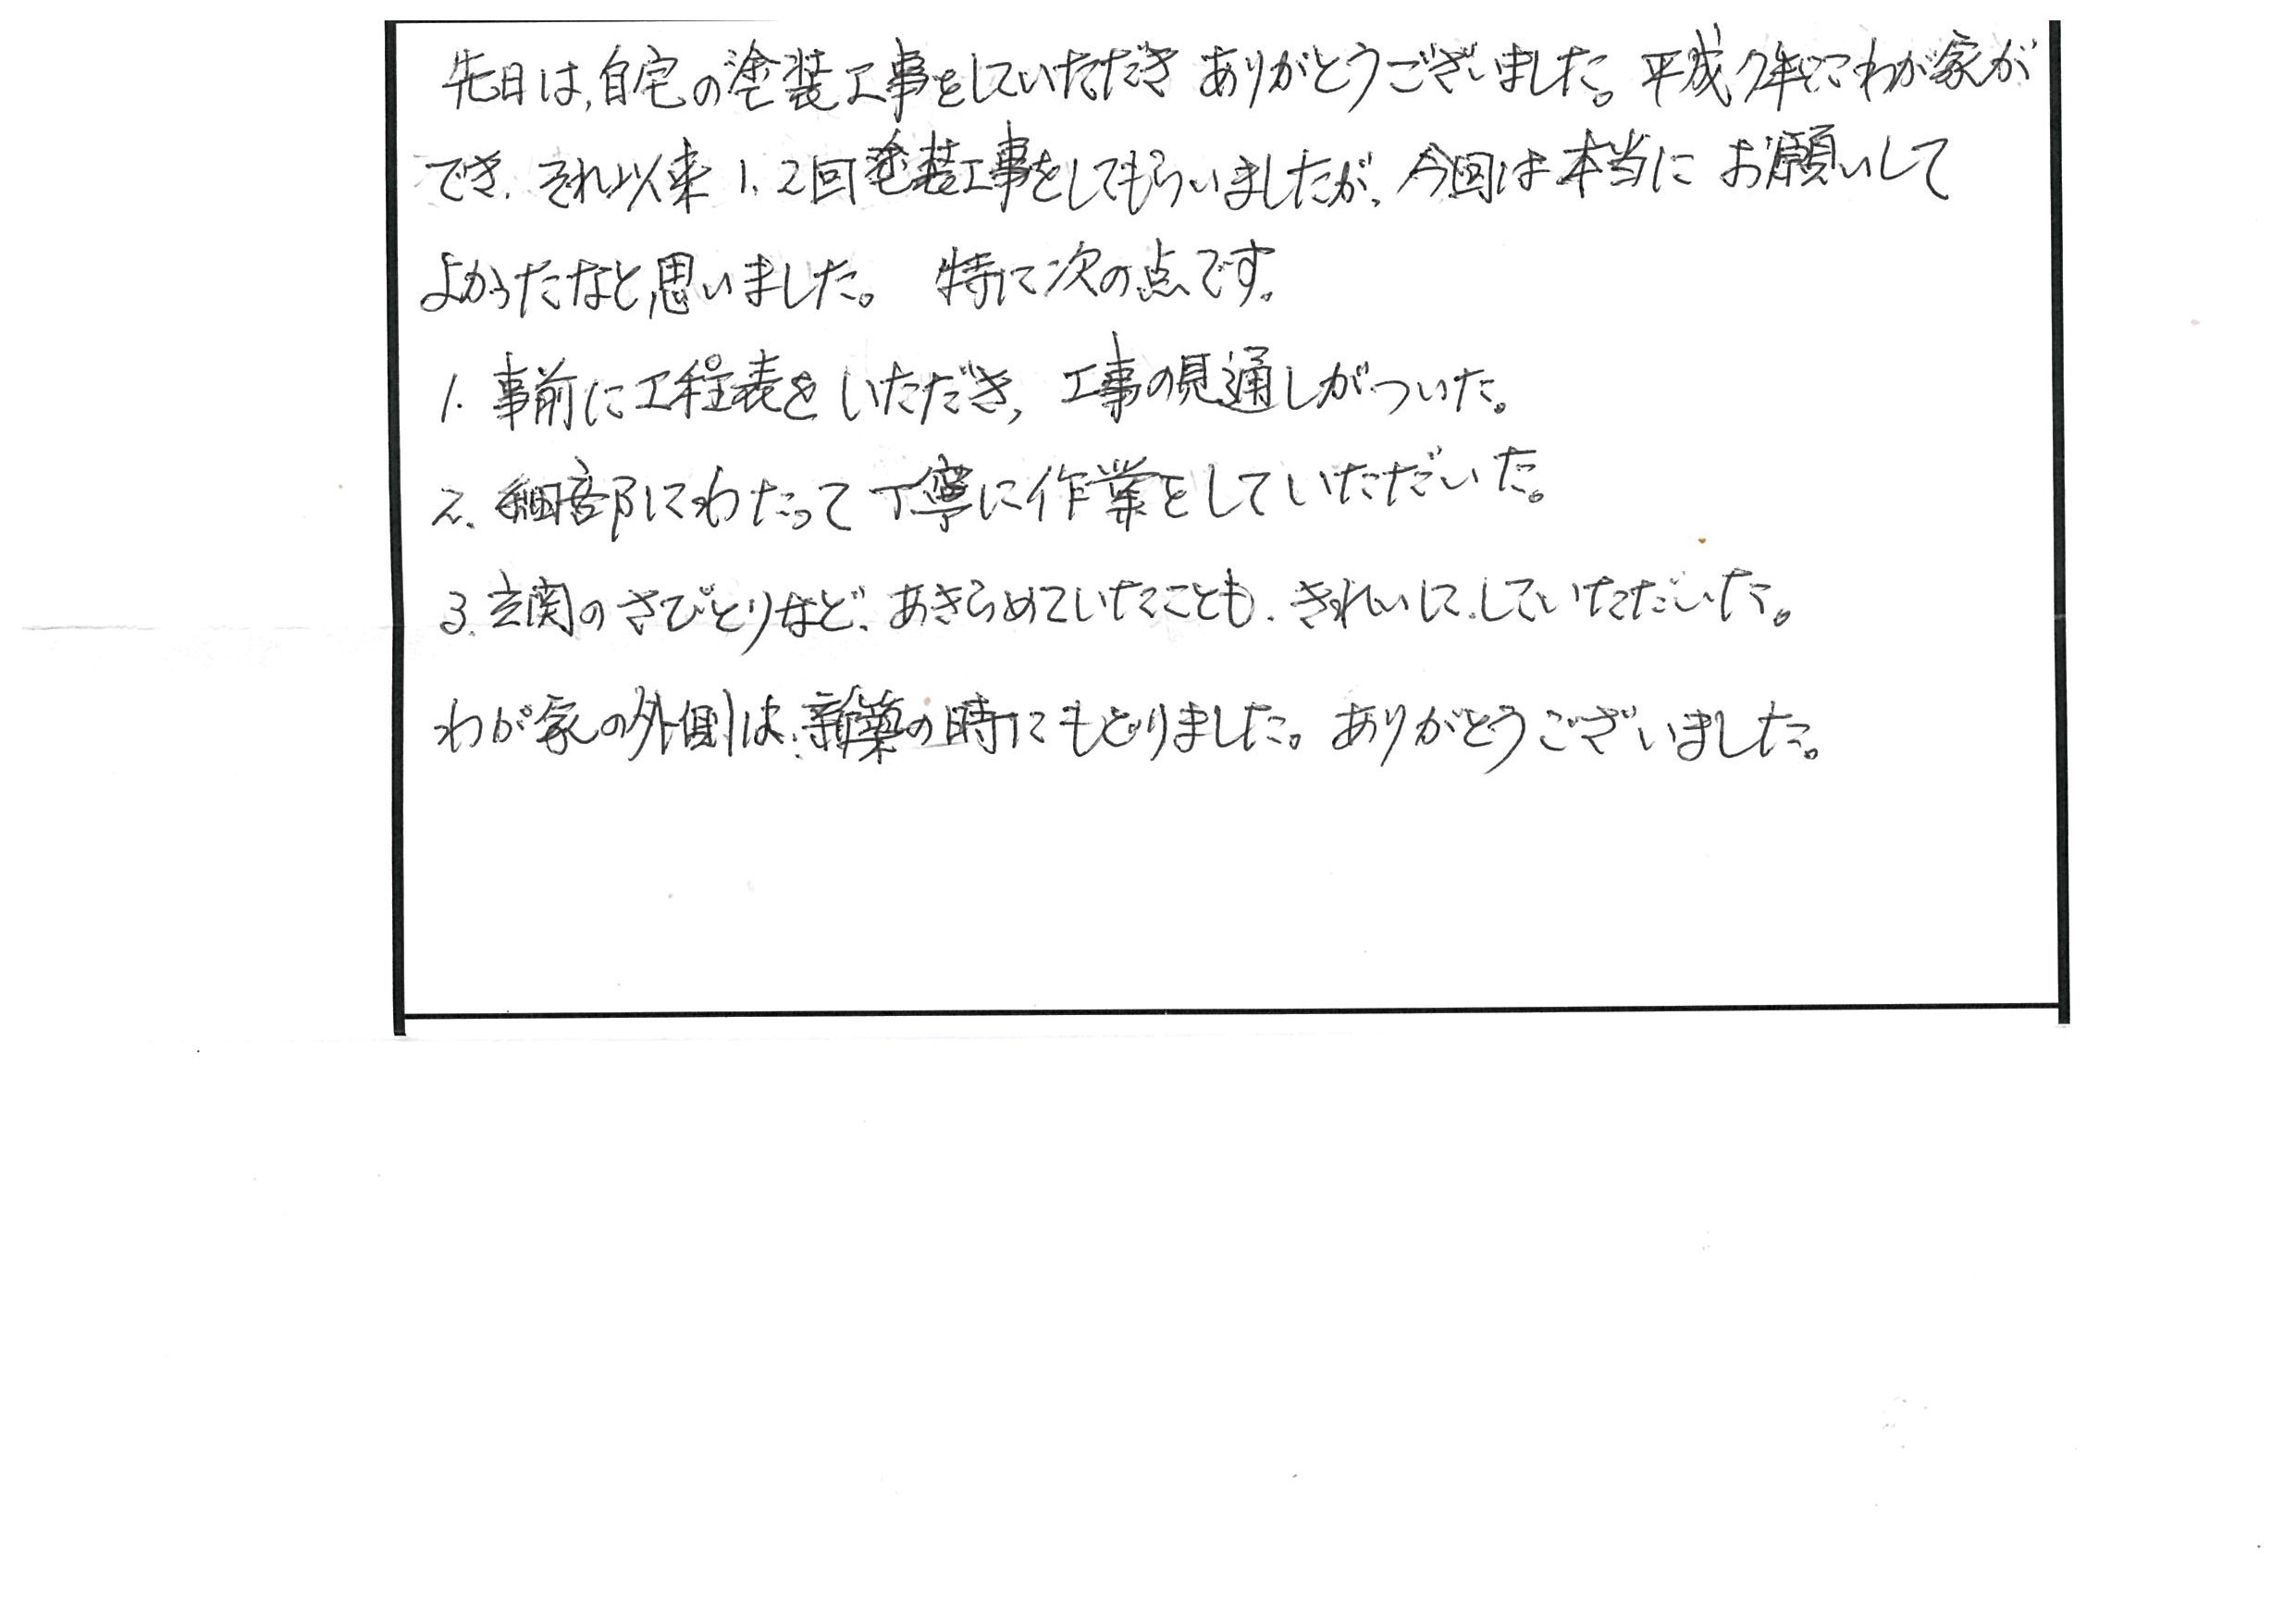 先日は、自宅の塗装工事をしていただき ありがとうございました。平成7年にわが家が
でき、それ以来1、2回塗装工事をしてもらいましたが、今回は本当に お願いして
よかったなと思いました。 特に次の点です。
1. 事前に工程表をいただき、工事の見通しがついた。
2. 細部にわたって丁寧に作業をしていただいた。
3. 玄関のさびとりなど、あきらめていたことも、きれいに、していただいた。
わが家の外側は、新築の時にもどりました。ありがとうございました。